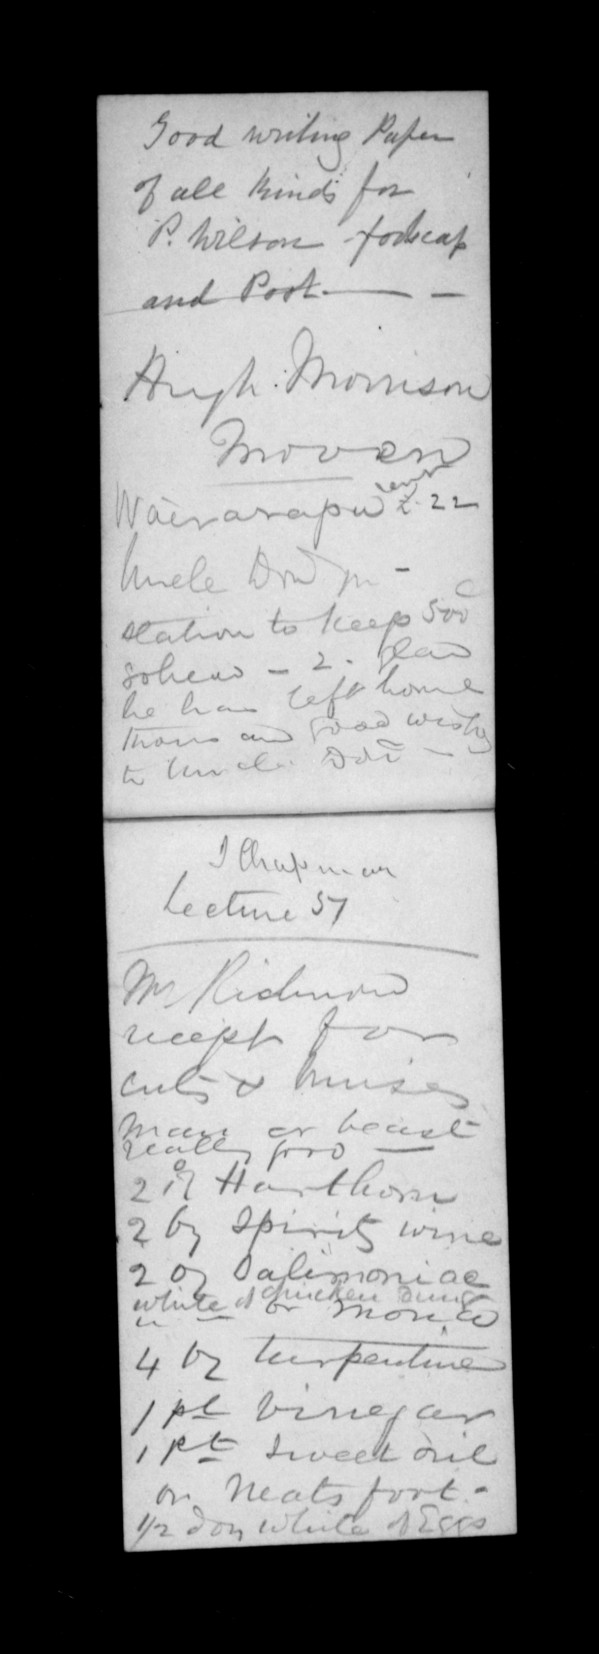 Good writing Paper
of all kinds for
P. Wilson - foolscap
and Post. — —
Hugh Morrison
Moven
Wairarapa 22
Uncle Don
station to keep 500
- 2. glad
he has left home
and good wishes
to Uncle Don -
J Chapman
Lecture 57
Mr Richmond
recept for
cuts & bruises
man or beast
really good —
2 oz Harthorn
2 oz Spirits wine
2 oz Salimoniac
white of chicken dung
" — or Monia
4 oz turpentine
1 pt Vinegar
1 pt Sweet oil
or Neats foot -
1/2 doz White of Eggs